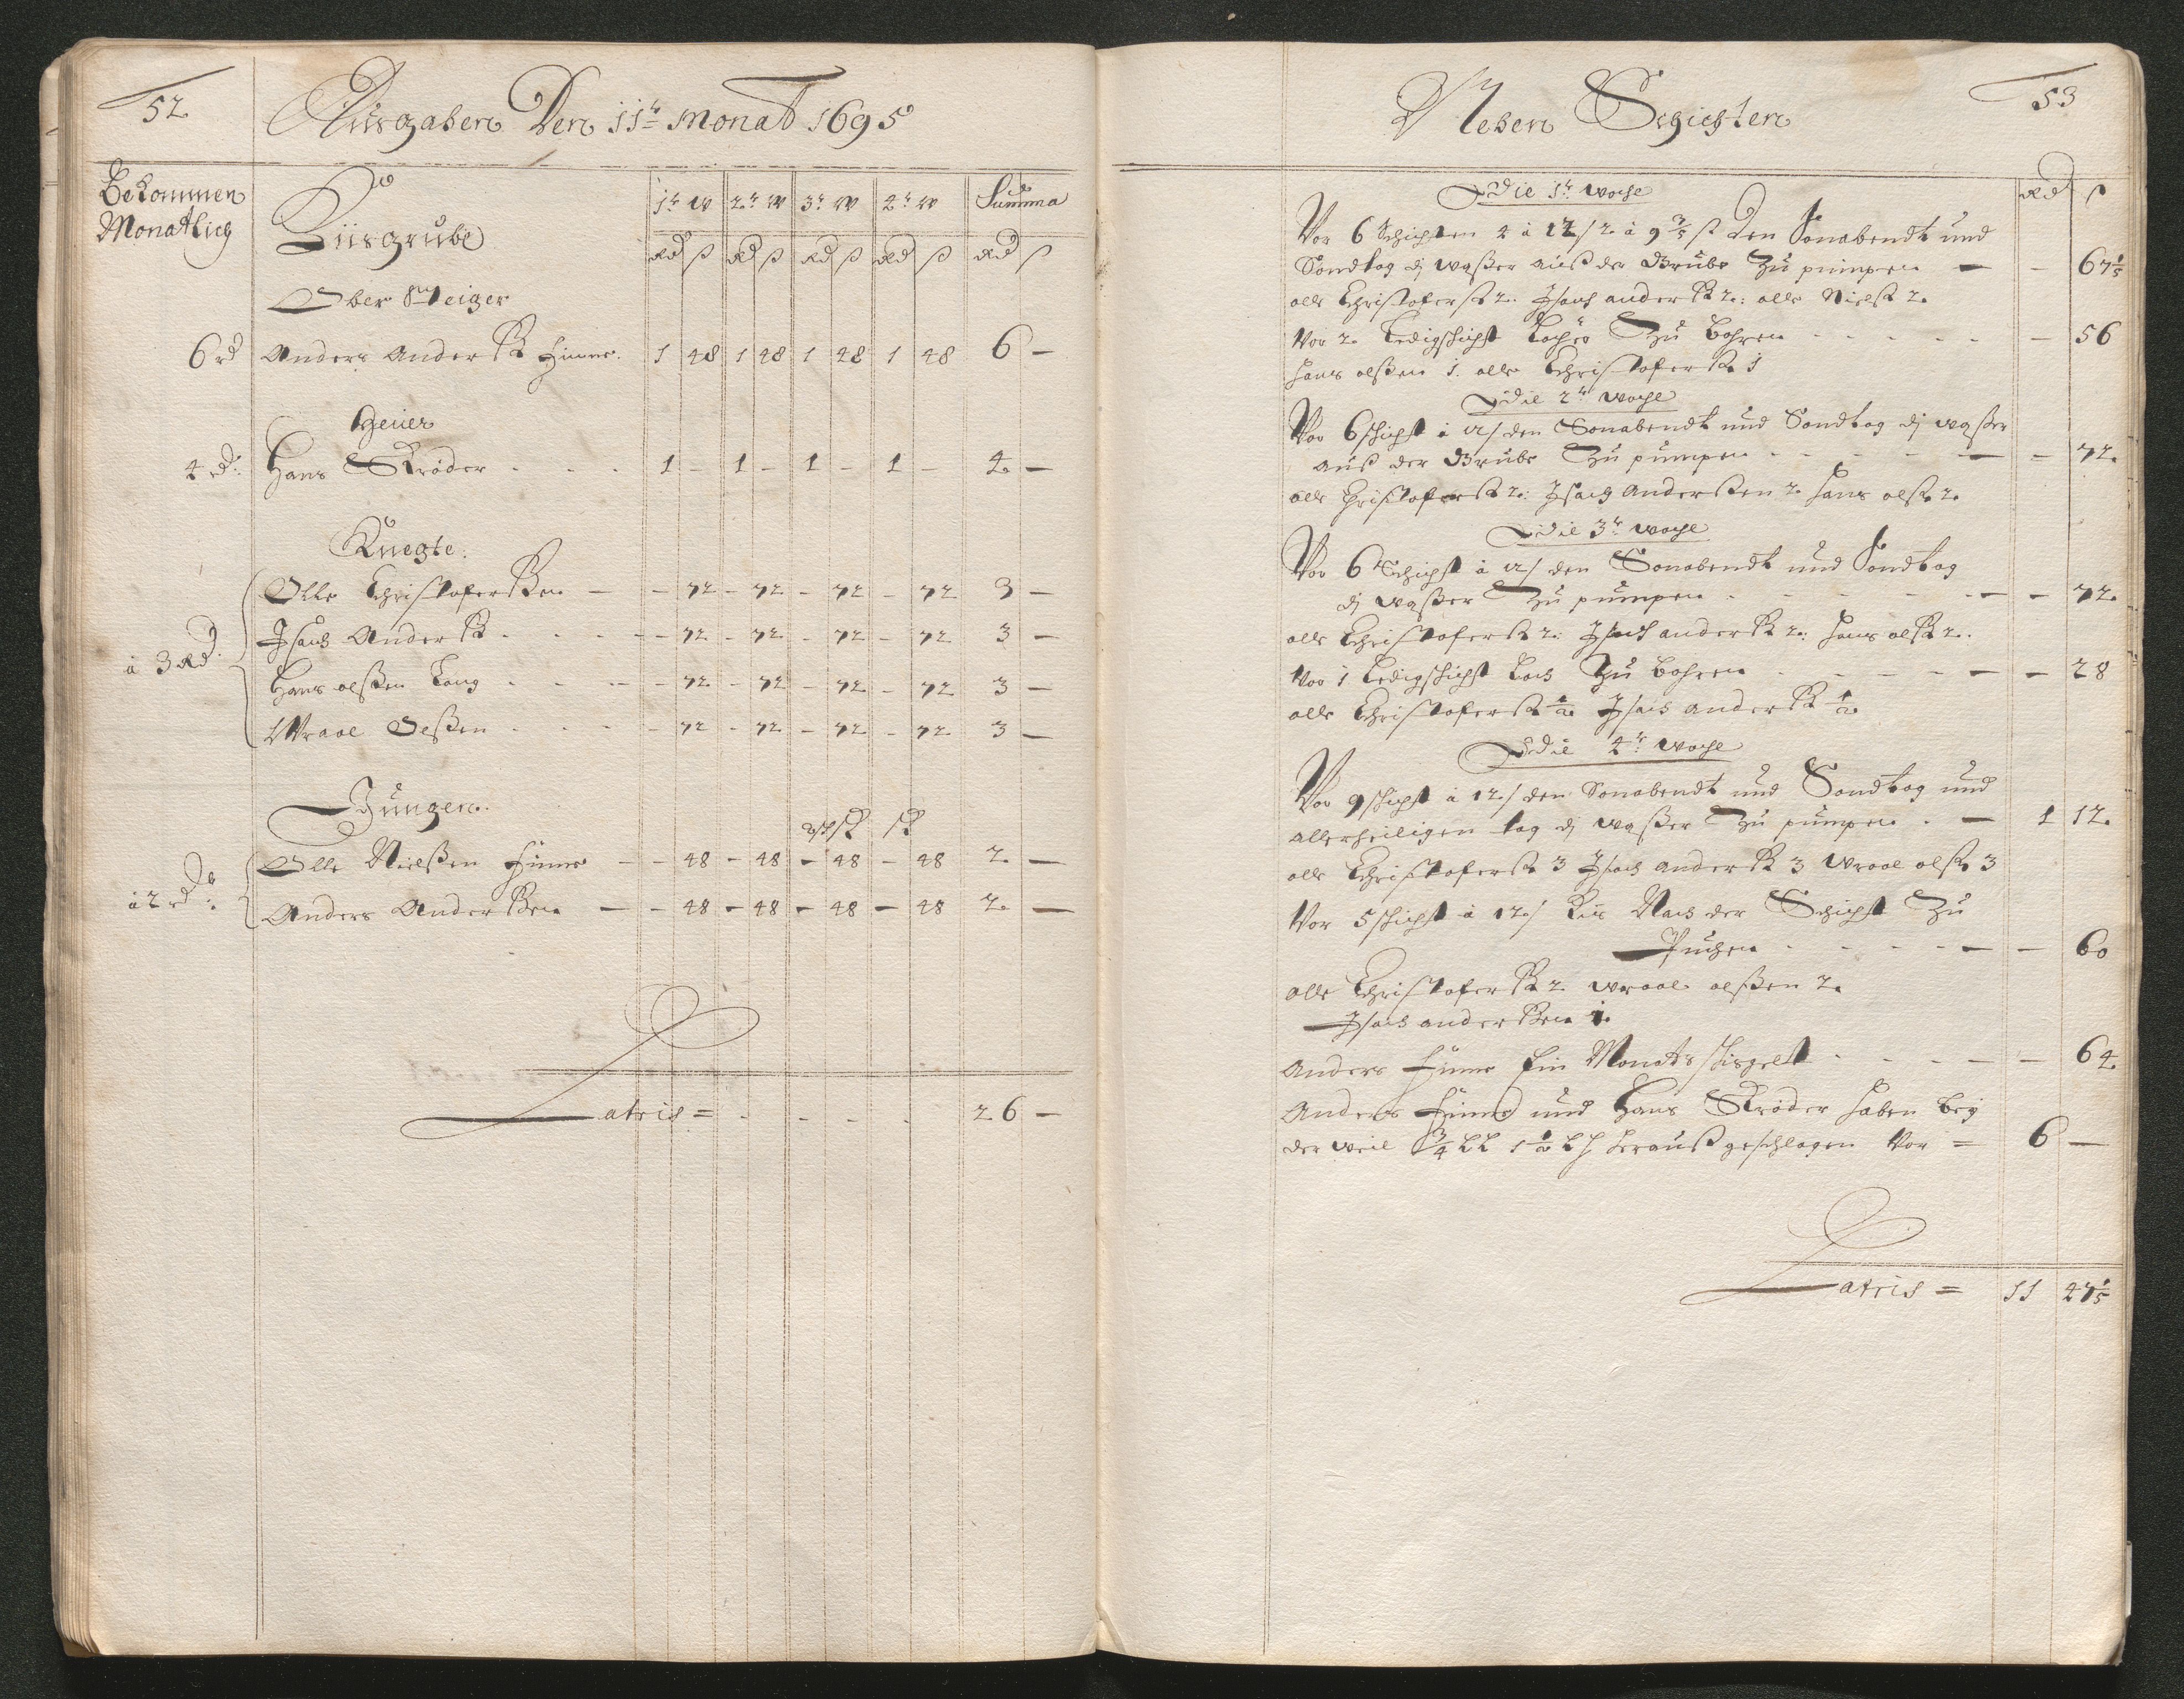 52
Ausgaben Den 11t Monat 1695
Bekommen
Monatlich
1t W 2t W 3t W 4t W Summa
Rd ß Rd ß Rd ß Rd ß Rd ß
Ober Steiger
6 rd Anders Anderß 1 48 1 48 1 48 1 48 6 —
4 rd: Hans Krøder - - - 1 – 1 – 1 – 1 – 4 —
Knegte:
Olle Christoferßen — – 72 – 72 – 72 – 72 3 —
Isach Anderß - - - – 72 – 72 – 72 – 72 3 —
à 3 Rd:
Hans olßen Lang - - - – 72 – 72 – 72 – 72 3 —
Wraal Oelßen - - - – 72 – 72 – 72 – 72 3 —
Jungen.
Olle Nielßen – 48 – 48 – 48 – 48 2 —
à 2 rd:
Anders Anderßen — – 48 – 48 – 48 – 48 2 —
Latris = - - - - 26 —
53
Neben Schichten
Die 1t woche Rd ß
Vor 6 Schichten 4 à 12/ 2 à 9 3/5 ß Den Sonabendt und
Sondtag di waßer auß der Grube Zu pumpen — – 67 1/5
olle Christoferß 2. Isach anderß 2: olle Nielß 2.
Vor 2. Ledigschicht Locher Zu bohren - - - - – 56
Hans olßen 1. olle Christoferß 1
Die 2t woche
Vor 6 schicht à 12/ den Sonabendt und Sondtag di waßer
auß der Grube Zu pumpen - - - — – 72.
olle Christoferß 2: Isach Anderßen 2. Hans olß 2.
Die 3t woche
Vor 6 Schicht à 12/ den Sonabendt und Sondtag
di waßer Zu pumpen - - - — – 72.
olle Christoferß 2: Isach anderß 2: Hans olß 2.
Vor 1 Ledigschicht Loch Zu bohren - - - — – 28
olle Christoferß 1/2. Isach anderß 1/2
Die 4t woche
Vor 9 schicht à 12/ den Sonabendt und Sondtag und
allerheiligen tag di waßer Zu pumpen - — 1 12.
olle Christoferß 3 Isach anderß 3 Wraal olß 3
Vor 5 schicht à 12/ Nach der Schicht Zu
Puchen - - - — – 60
olle Christoferß 2. Wraal olßen 2.
Isach anderßen 1.
Anders Ein Monats - - - — – 64
Anders und Hans Krøder haben bey
der weil 3/4 1 1/2 herauß geschlagen Vor = 6 —
Latris = 11 47 1/5